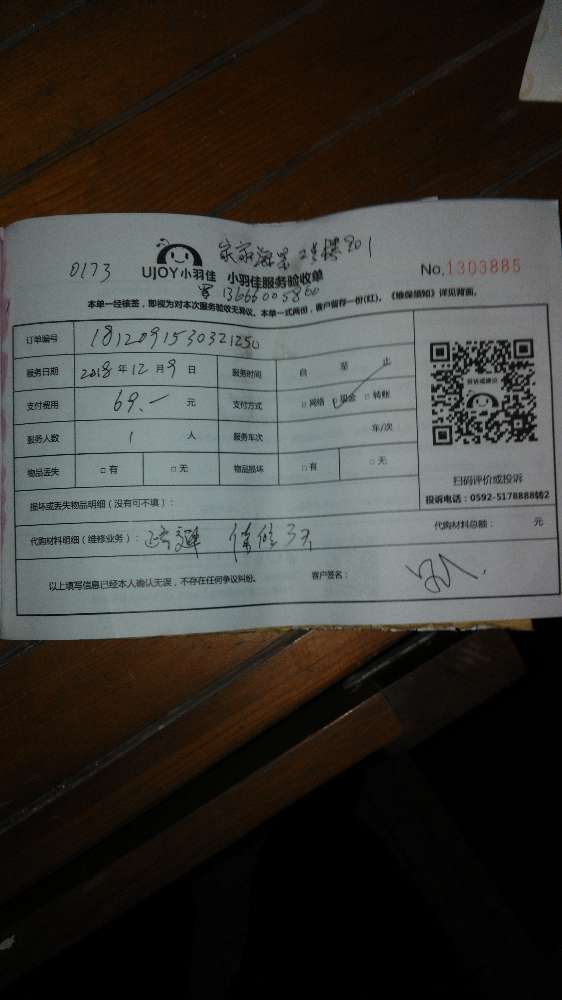 0173
UJOY小羽佳 小羽佳服务验收单
No.1303885
2号楼901
13666005860
本单一经核签，即视为对本次服务验收无异议。本单一式两份，客户留存一份(红)。《维保须知》详见背面。
订单编号 1812091530321250
服务日期 2018 年 12 月 9 日 服务时间 自 至 止
支付费用 69.— 元 支付方式 □网络 □现金 □转账
服务人数 1 人 服务车次 车/次
物品丢失 □有 □无 物品损坏 □有 □无
投诉或建议
扫码评价或投诉
投诉电话：0592-5178888转2
损坏或丢失物品明细（没有可不填）：
代购材料明细（维修业务）： 代购材料总额： 元
以上填写信息已经本人确认无误，不存在任何争议纠纷。 客户签名：